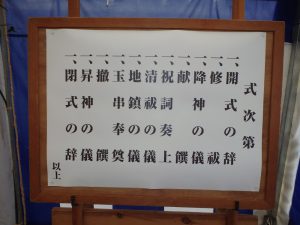 式次第
一、開式の辞
一、修祓
一、降神の儀
一、献饌
一、祝詞奏上
一、清祓の儀
一、地鎮の儀
一、玉串奉奠
一、撤饌
一、昇神の儀
一、閉式の辞
以上